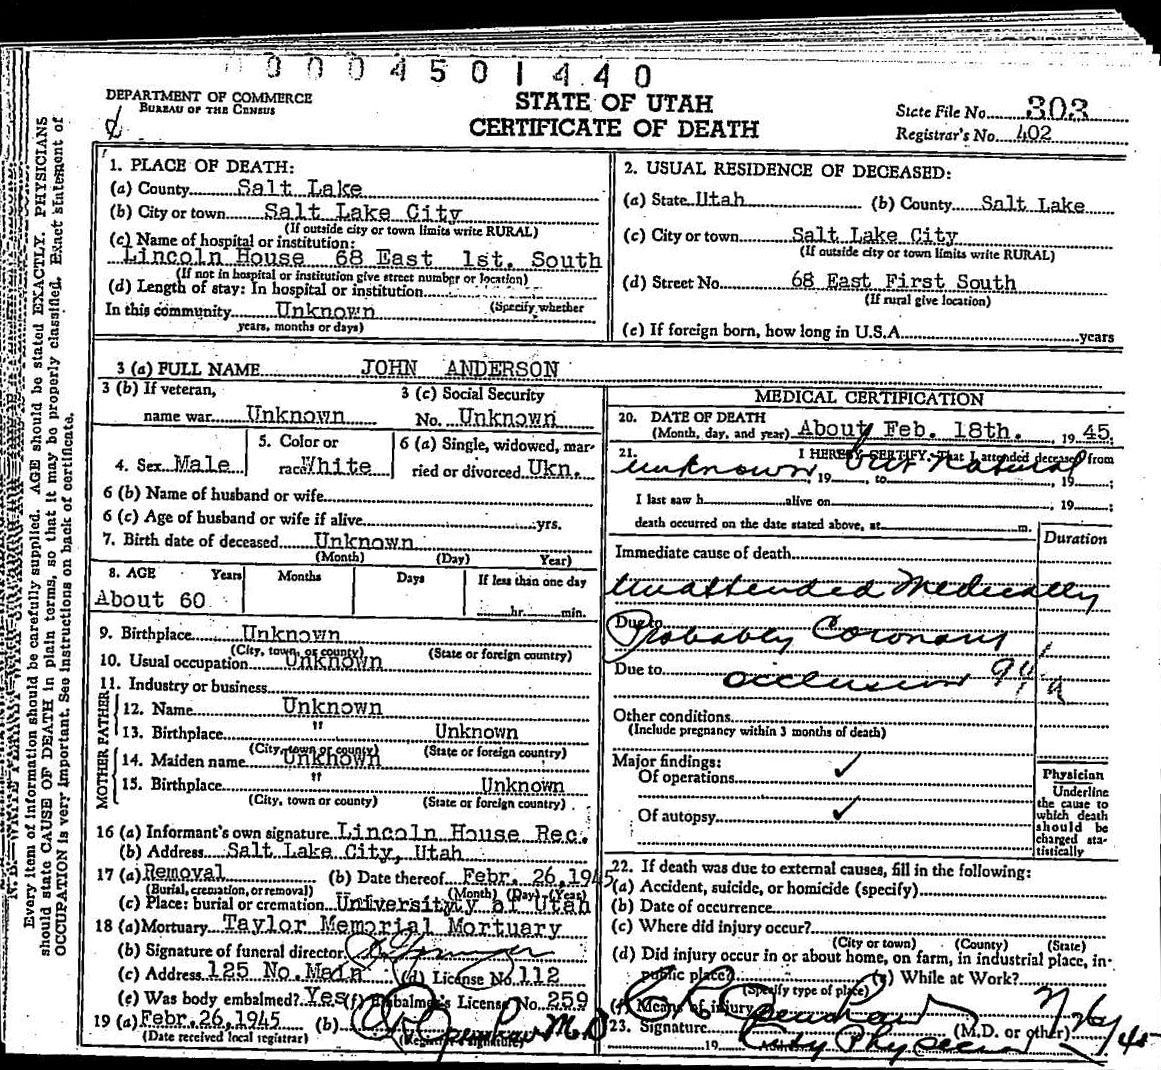 0 0 0 4 5 0 1 4 4 0
DEPARTMENT OF COMMERCE
BUREAU OF THE CENSUS
STATE OF UTAH
CERTIFICATE OF DEATH
State File No. 303
Registrar's No. 402
Every item of information should be carefully supplied. AGE should be stated EXACTLY. PHYSICIANS
should state CAUSE OF DEATH in plain terms, so that it may be properly classified. Exact statement of
OCCUPATION is very important. See instructions on back of certificate.
1. PLACE OF DEATH:
(a) County Salt Lake
(b) City or town Salt Lake City
(If outside city or town limits write RURAL)
(c) Name of hospital or institution:
Lincoln House 68 East 1st. South
(If not in hospital or institution give street number or location)
(d) Length of stay: In hospital or institution
(Specify whether
In this community Unknown
years, months or days)
2. USUAL RESIDENCE OF DECEASED:
(a) State Utah (b) County Salt Lake
(c) City or town Salt Lake City
(If outside city or town limits write RURAL)
(d) Street No. 68 East First South
(If rural give location)
(e) If foreign born, how long in U.S.A. years
3 (a) FULL NAME JOHN ANDERSON
3 (b) If veteran,
name war Unknown
3 (c) Social Security
No. Unknown
4. Sex Male
5. Color or
race White
6 (a) Single, widowed, mar-
ried or divorced Ukn.
6 (b) Name of husband or wife
6 (c) Age of husband or wife if alive yrs.
7. Birth date of deceased Unknown
(Month) (Day) Year)
8. AGE Years Months Days If less than one day
About 60 hr. min.
9. Birthplace Unknown
(City, town, or county) (State or foreign country)
10. Usual occupation Unknown
11. Industry or business
FATHER
12. Name Unknown
13. Birthplace " Unknown
(City, town or county) (State or foreign country)
MOTHER
14. Maiden name Unknown
15. Birthplace " Unknown
(City, town or county) (State or foreign country)
16 (a) Informant's own signature Lincoln House Rec.
(b) Address Salt Lake City, Utah
17 (a) Removal (b) Date thereof Febr. 26, 1945
(Burial, cremation, or removal) (Month) (Day) (Year)
(c) Place: burial or cremation University of Utah
18 (a) Mortuary Taylor Memorial Mortuary
(b) Signature of funeral director
(c) Address 125 No. Main (d) License No. 112
(e) Was body embalmed? Yes (f) Embalmer's License No. 259
19 (a) Febr. 26, 1945 (b) M.D.
(Date received local registrar) (Registrar's signature)
MEDICAL CERTIFICATION
20. DATE OF DEATH
(Month, day, and year) About Feb. 18th. 19 45.
21. I HEREBY CERTIFY, That I attended deceased from
unknown, but natural
, 19 , to , 19 ;
I last saw h alive on , 19 ;
death occurred on the date stated above, at m.
Duration
Immediate cause of death
Unattended Medically
Due to
Probably Coronary
Due to occlusion 94
a
Other conditions
(Include pregnancy within 3 months of death)
Major findings:
Of operations ✓
Of autopsy ✓
Physician
Underline
the cause to
which death
should be
charged sta-
tistically
22. If death was due to external causes, fill in the following:
(a) Accident, suicide, or homicide (specify)
(b) Date of occurrence
(c) Where did injury occur?
(City or town) (County) (State)
(d) Did injury occur in or about home, on farm, in industrial place, in
public place? (e) While at Work?
(Specify type of place)
(f) Means of injury
23. Signature (M.D. or other)
19 City Physician